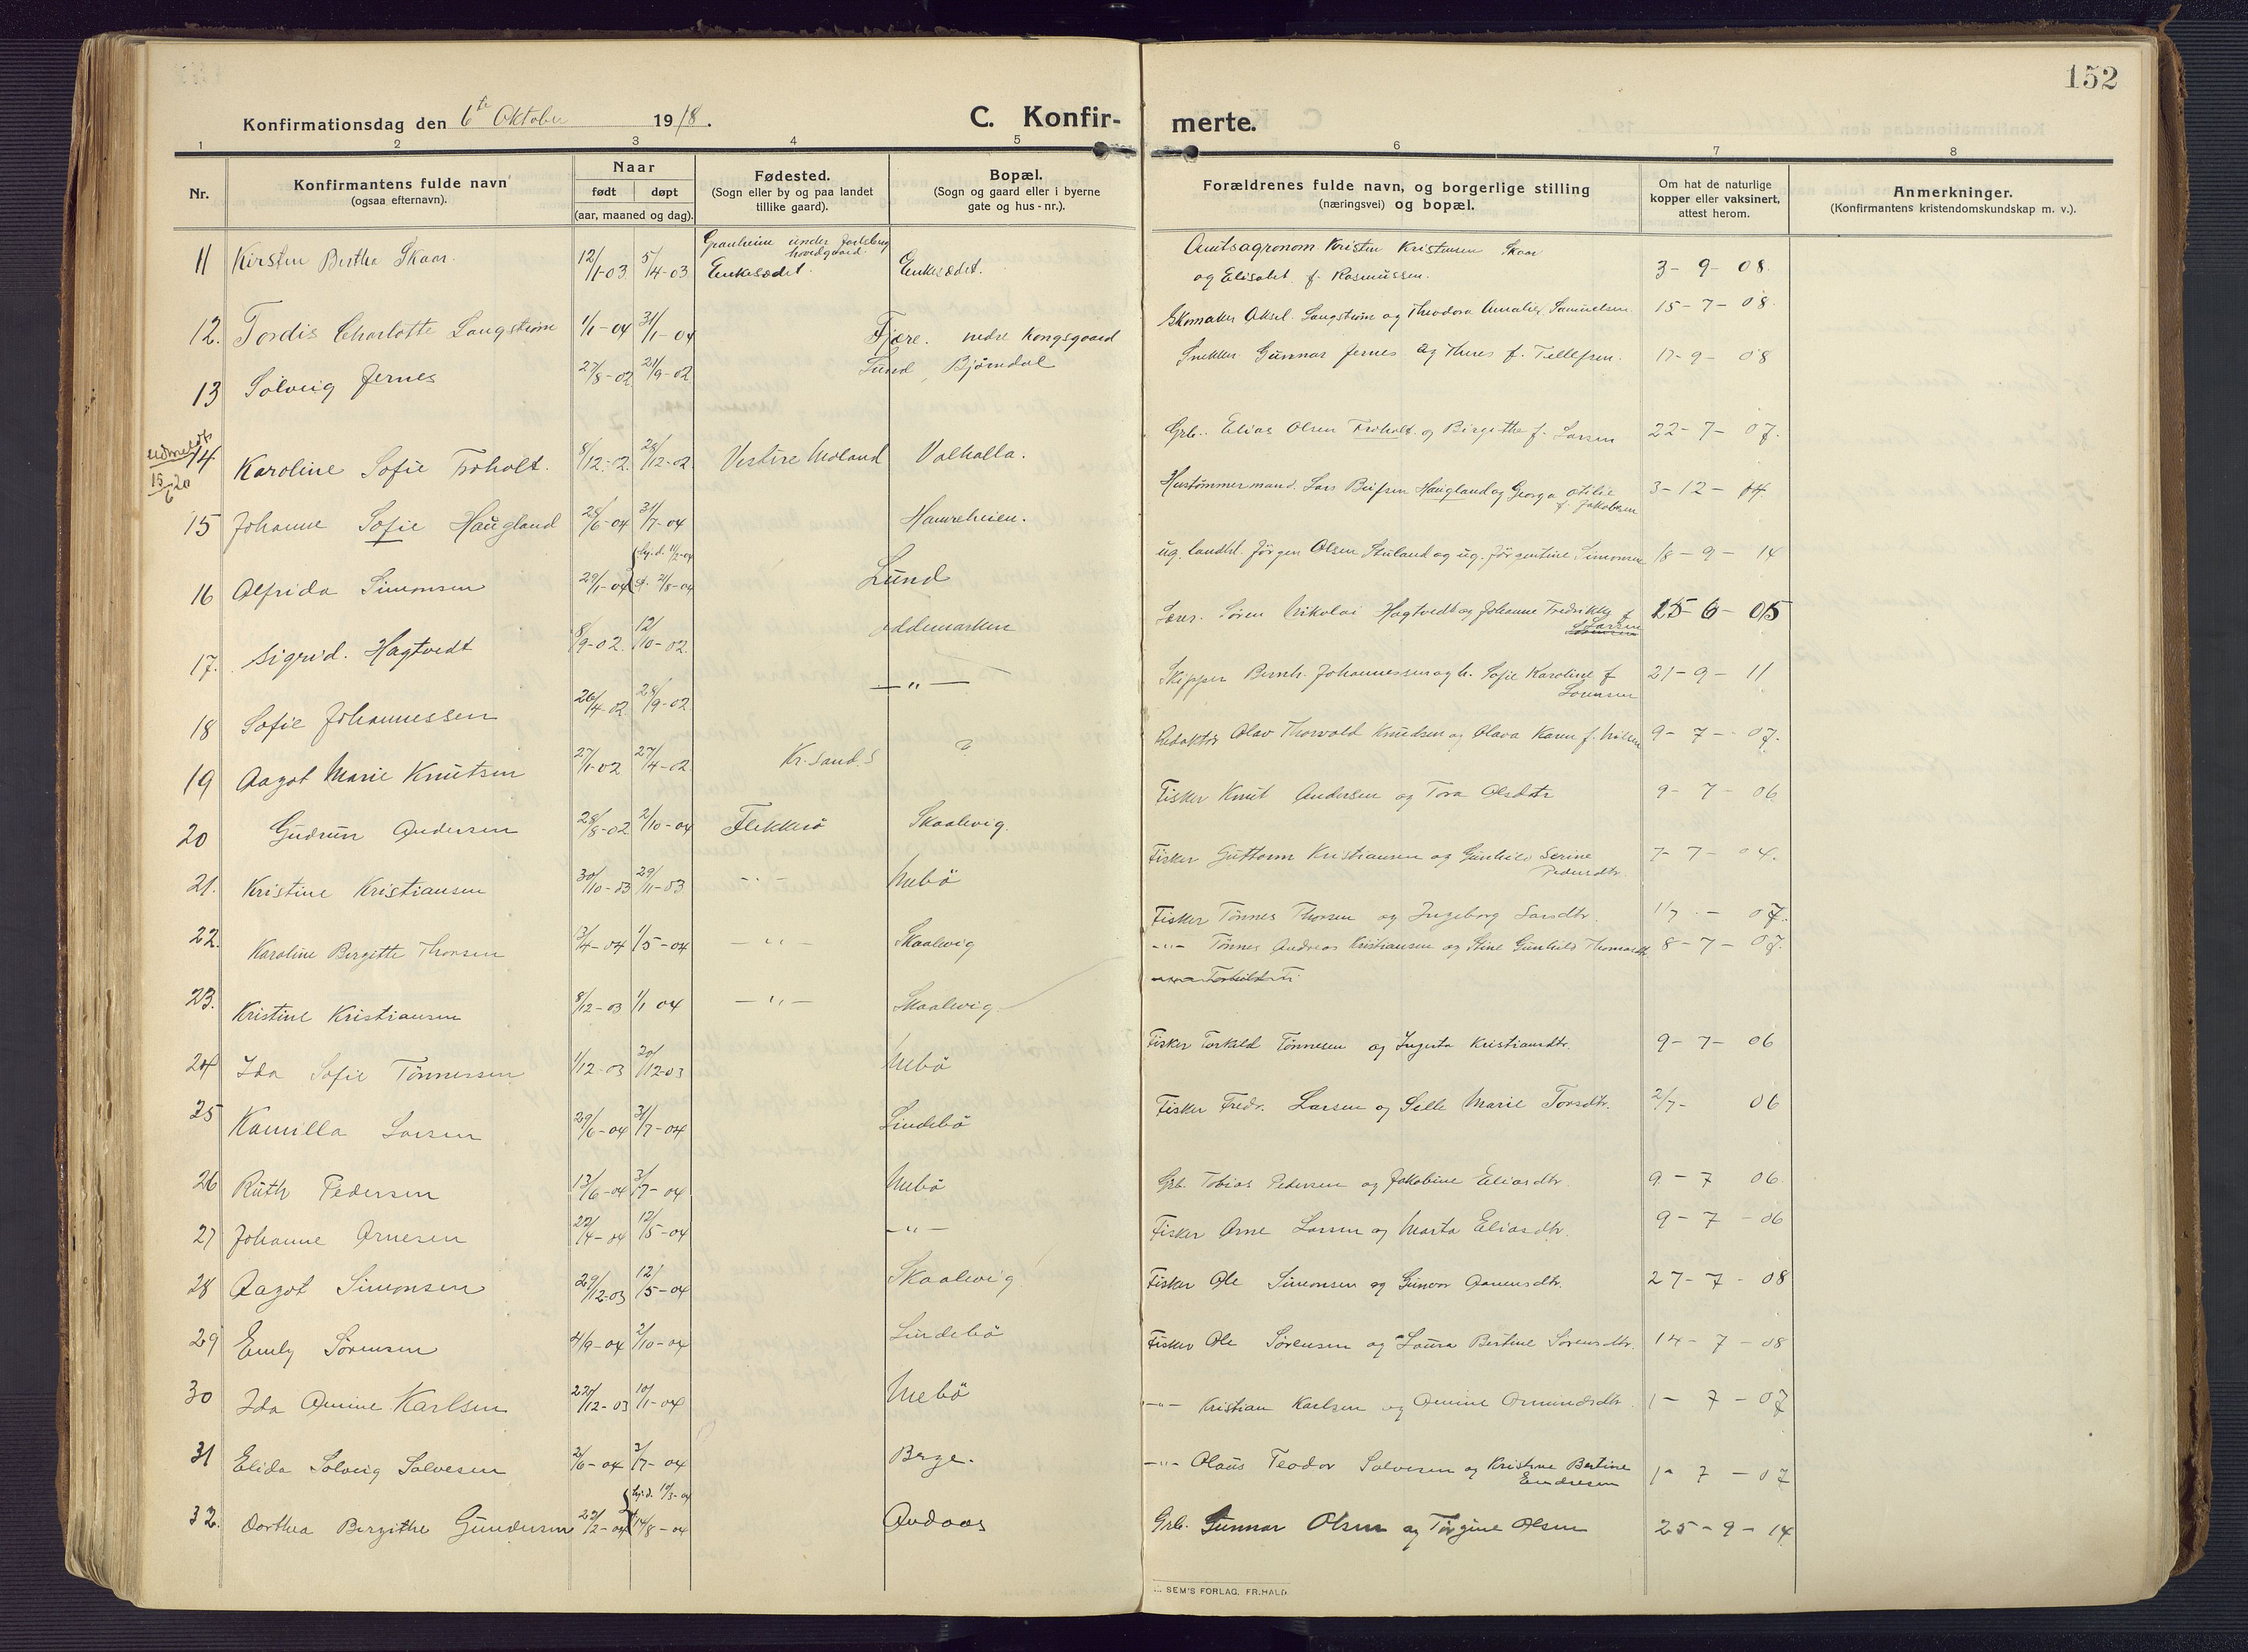 152
Konfirmationsdag den 6te Oktober 1918.
C. Konfir-
merte.
1 2 3 4 5 6 7 8
Nr.
Konfirmantens fulde navn
(ogsaa efternavn).
Naar
født døpt
(aar, maaned og dag).
Fødested.
(Sogn eller by og paa landet
tillike gaard).
Bopæl.
(Sogn og gaard eller i byerne
gate og hus-nr.).
Forældrenes fulde navn, og borgerlige stilling
(næringsvei) og bopæl.
Om hat de naturlige
kopper eller vaksinert,
attest herom.
Anmerkninger.
(Konfirmantens kristendomskundskap m. v.).
11 Kirsten Bertha Skaar. 12/1-03 5/4-03 under hovedgaard. Enkesædet. Enkesædet. Amtsagronom Kristen Kristensen Skaar
og Elisabet f. Rasmussen. 3-9-08.
12. Tordis Charlotte Langstrøm 1/1-04 31/1-04 Fjære. nedre Kongsgaard Skomaker Aksel Langstrøm og Theodora Amalie Samuelsen 15-7-08
13 Solveig Jernes 27/8-02 21/9-02 Lund, Bjørndal Snekker Gunnar Jernes og Theres f. Tellefsen. 17-9-08
14 Karoline Sofie Froholt. 8/12-02. 28/12-02. Vestre Moland Valhalla. Grb. Elias Olsen Froholt og Birgithe f. Larsen 22-7-07.
15/6 20
15 Johanne Sofie Haugland 28/6-04 31/7-04 Hamreheien. Hustømmermand. Lars Haugland og Georga Otilie
f. Jakobsen 3-12-14
16 Alfrida Simonsen 29/1-04 hj.d. 11/2-04
2/8-04 Lund ug. landhl. Jørgen Olsen og ug. Jørgentine Simonsen 18-9-14
17. Sigrid. Hagtvedt 8/9-02. 12/10-02. Oddemarken Søren Nikolai Hagtvedt og Johanne Fredrikke f.
Larsen 25-6-05
18 Sofie Johannessen 26/4-02 28/9-02 -"- Skipper Bernh. Johannessen og h. Sofie Karoline f
Sørensen 21-9-11
19 Aagot Marie Knutsen 27/1-02 27/4-02. Kr.sand. S ? Redaktør Olav Thorvald Knudsen og Olava Karen f. Nilsen 9-7-07.
20 Gudrun Andersen 28/8-02 2/10-04 Flekkerø Skaalevig. Fisker Knut Andersen og Tora Olsdtr 9-7-06
21. Kristine Kristiansen 30/10-03 29/11-03 -"- Mebö Fisker Guttorm Kristiansen og Gunhild Serine
Pedersdtr. 7-7-04.
22. Karoline Birgitte Thorsen 3/4-04 1/5-04 -"- Skaalevig Fisker Tønnes Thorsen og Ingeborg Larsdtr. 1/7-07.
23. Kristine Kristiansen 8/12-03 1/1 04 -"- Skaalevig -"- Tønnes Andreas Kristiansen og Stine Gunhild Thomasdtr. 8-7-07.
24 Ida Sofie Tønnessen 1/12-03 20/12-03 Mebö Fisker Torkeld Tönnesen og Ingerta Kristiansdtr. 9-7-06
25 Kamilla Larsen 29/6-04 31/7-04 Lindebö Fisker Fredr. Larsen og Selle Marie Torsdtr. 2/7-06
26 Ruth Pedersen 13/6-04 3/7-04 Mebö Grb. Tobias Pedersen og Jakobine Eliasdtr. 9-7 06
27 Johanne Arnesen 22/4-04 12/5-04 -"- Fisker Arne Larsen og Marta Eliasdtr. 9-7-06
28 Aagot Simonsen 29/12-03 12/5-04 Skaalevig Fisker Ole Simonsen og Gunvor Aanensdtr. 27-7-08
29 Emly Sørensen 4/9-04 2/10-04 Lindebö Fisker Ole Sørensen og Laura Bertine Sorensdtr. 14-7-08
30 Ida Amine Karlsen 22/12-03 10/1-04 Mebö -"- Kristian Karlsen og Amine Osmundsdtr. 1-7-07
31 Elida Solveig Salvesen 2/6-04 3/7-04 Berge. -"- Olaus Teodor Salvesen og Kristine Bertine
Endresen 1-7-07
32. Dorthea Birgithe Gundersen 22/2-04 hj.d. 10/3-04
14/8-04 Andaas Grb. Gunnar Olsen og Törgine Olsen 25-9-14
SEM'S FORLAG. FR.HALD.